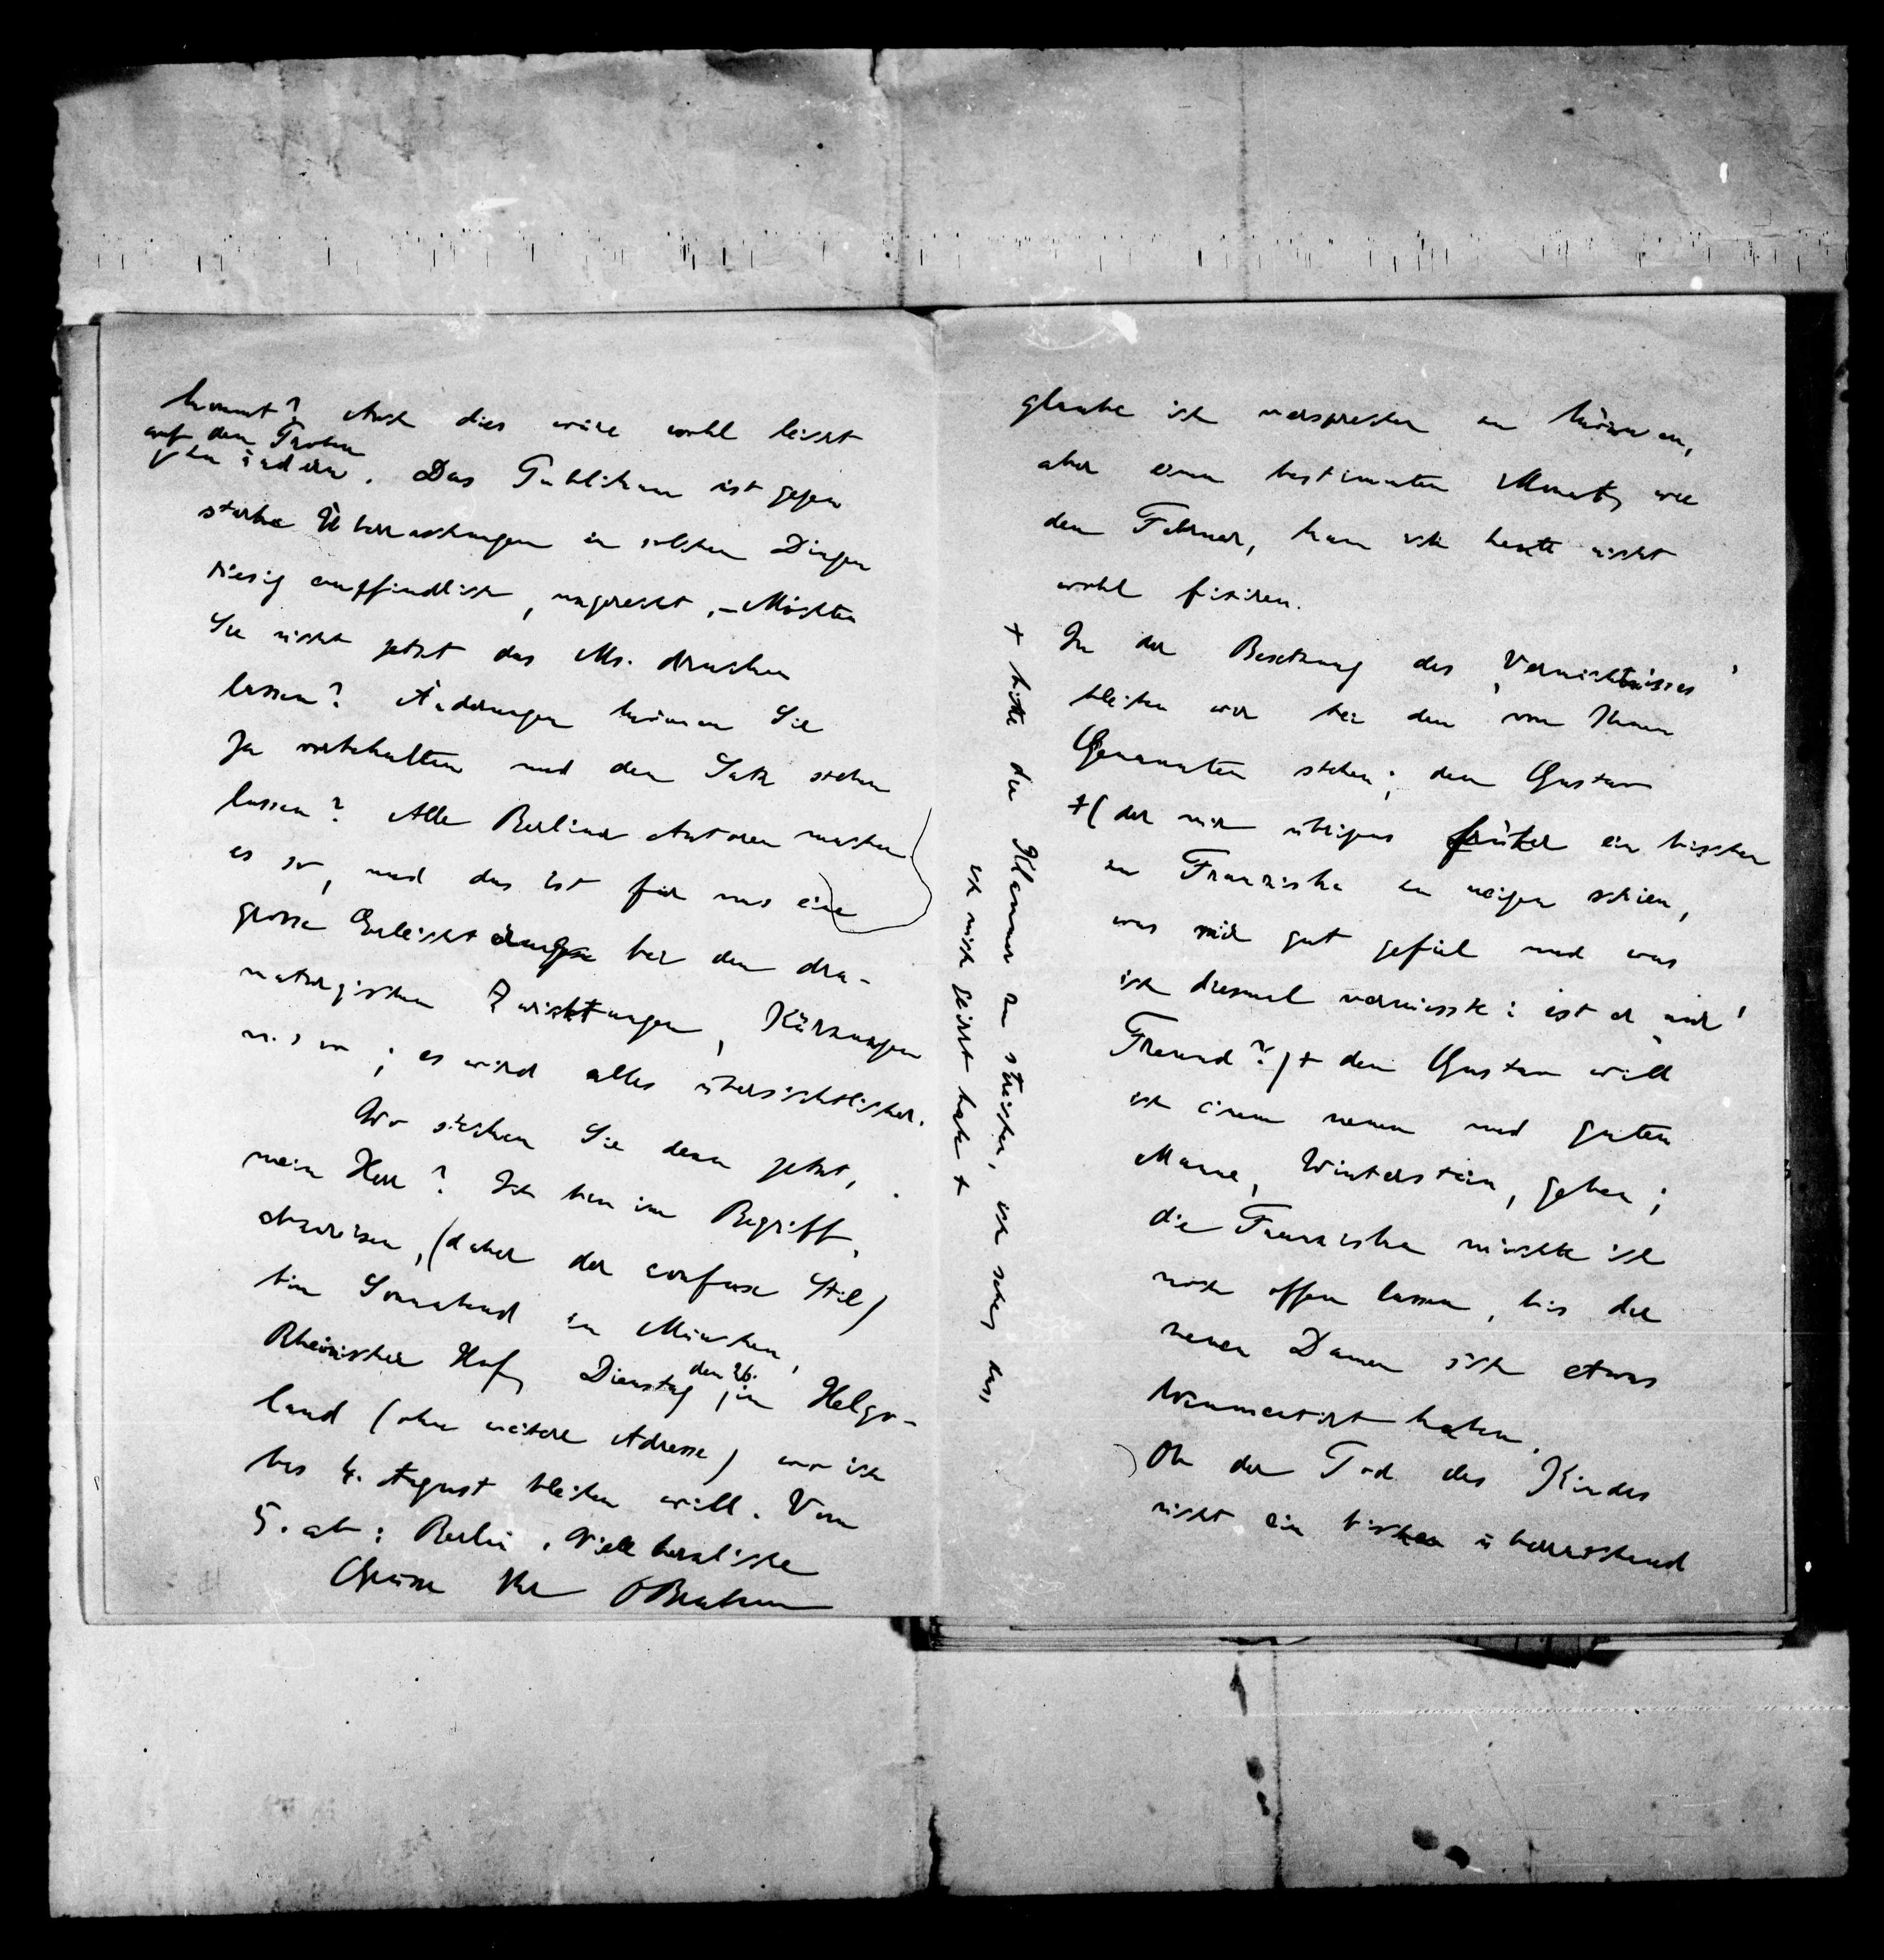 glaube ich versprechen zu können,
aber einen bestimmten Monat, wie
den Februar, kann ich heute nicht
wohl fixiren.
In der Besetzung des 'Vermächtnisses'
bleiben wir bei den von Ihnen
Genannten stehen; den Gustav
+(der mir übrigens früher ein bischen
zu Franziska zu neigen schien,
was mir gut gefiel und was
ich diesmal vermisste: ist er nur
Freund?)+ den Gustav will
ich einem neuen und guten
Manne, Winterstein, geben;
die Franziska möchte ich
noch offen lassen, bis die
neuen Damen sich etwas
documentirt haben.
Ob der Tod des Kindes
nicht ein bischen überraschend
+ bitte die Klammer zu streichen, ich sehe, dass
ich mich geirrt habe +
kommt? Auch dies wäre wohl leicht
auf den Proben
zu ändern. Das Publikum ist gegen
starke Überraschungen in solchen Dingen
riesig empfindlich, ungerecht. – Möchten
Sie nicht jetzt das Ms. drucken
lassen? Änderungen können Sie
ja vorbehalten und den Satz stehen
lassen? Alle Berliner Autoren machen
es so, und das ist für uns eine
grosse Erleichterung bei den dra-
maturgischen Einrichtungen, Kürzungen
u.s.w; es wird alles übersichtlicher.
Wo stecken Sie denn jetzt,
mein Herr? Ich bin im Begriff,
abzureisen, (daher der confuse Stil)
bin Sonnabend in München,
Rheinischer Hof, Dienstag den 26. in Helgo-
land (ohne weitere Adresse) wo ich
bis 4. August bleiben will. Vom
5. ab: Berlin. Viele herzliche
Grüsse Ihr OBrahm